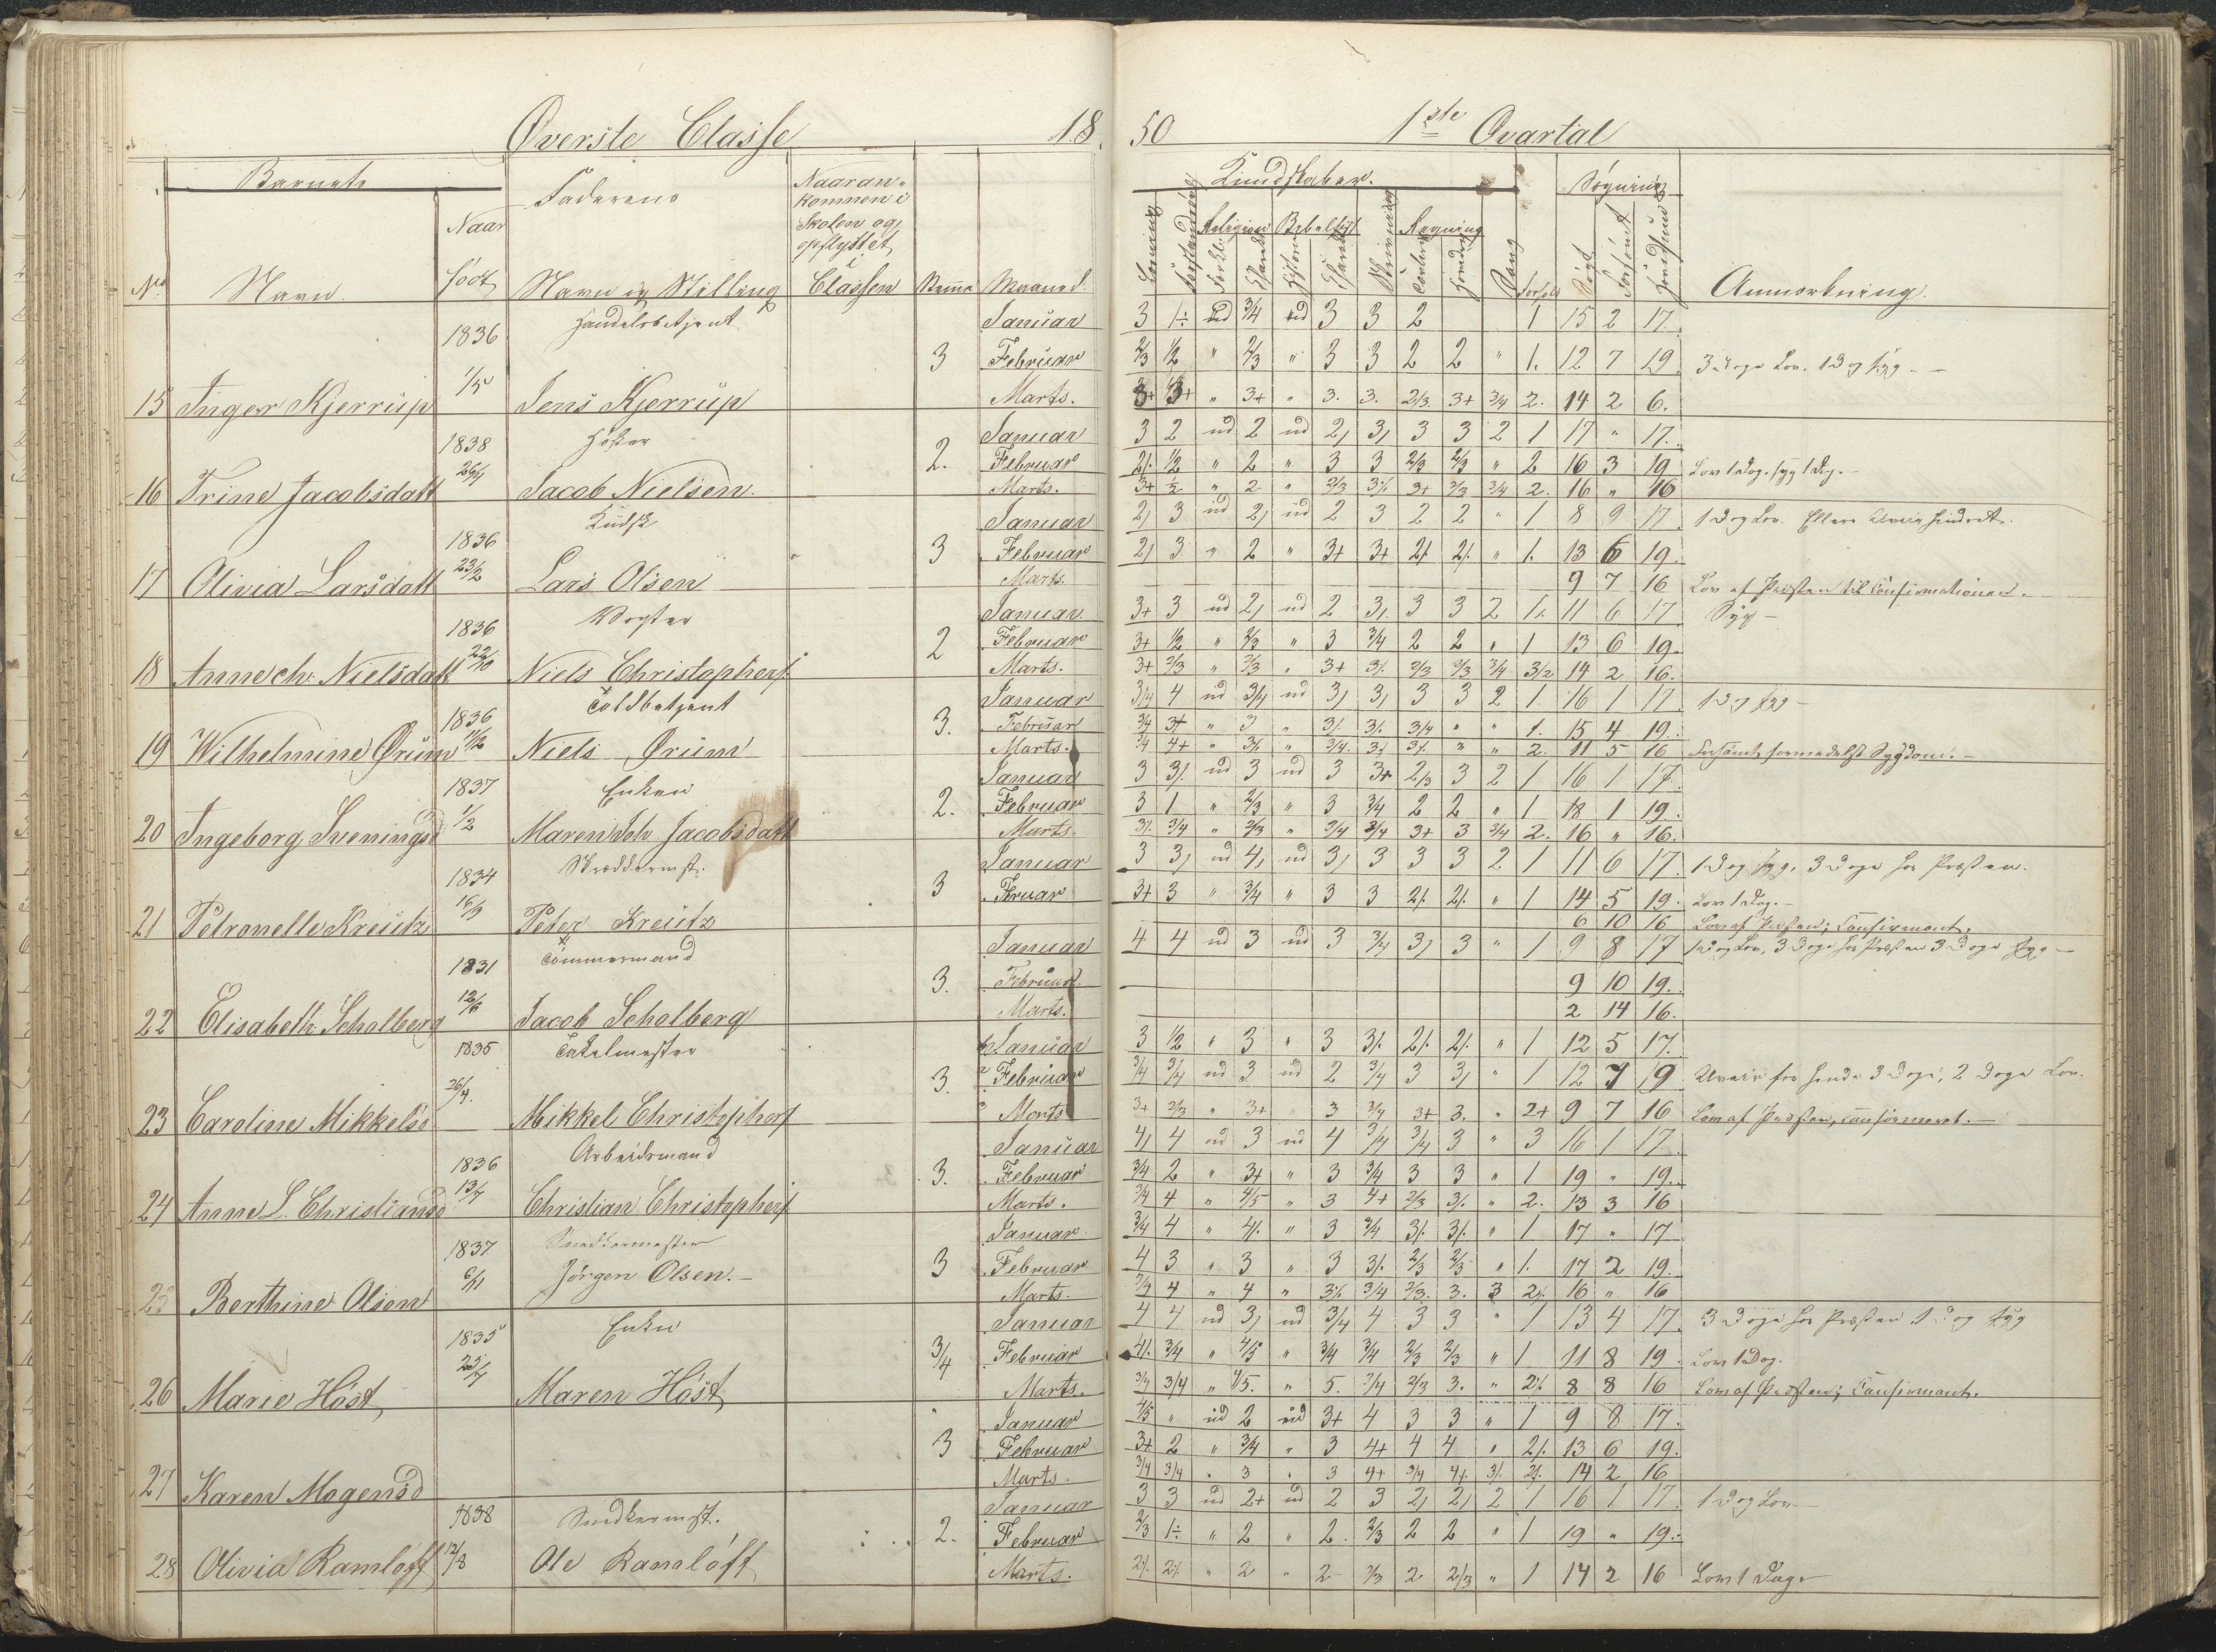 Øverste Classe 18
50 1ste Qvartal
Barnets
Faderens
Naar an-
kommen i
Skolen og
opflyttet
i
Naar
født
No Navn. Navn og Stilling Classen Evne Maaned.
Kundskaber. Søgning
Religion Bibelhist Regning
Anmærkning.
1836 Handelsbetjent Januar 3 1÷ ud 3/4 ud 3 3 2 1 15 2 17.
3 Februar 2/3 1/2 " 2/3 " 3 3 2 2 " 1. 12 7 19 3 Dage Lov. 1 Dag syg
15 Inger Kjerrup 1/5 Jens Kjerrup Marts. 3+ 3+ " 3+ " 3. 3. 2/3. 3+ 3/4 2. 14 2 6.
1838 Januar 3 2 ud 2 ud 2, 3, 3 3 2 1 17 " 17.
2. Februar 2/. 1/2 " 2 " 3 3 2/3 2/3 " 2 16 3 19 Lov 1 Dag. syg 1 Dag.
16 Trine Jacobsdatt 26/4 Jacob Nielsen. Marts. 3+ 1/2 " 2 " 2/3 3/. 3+ 2/3 3/4 2. 16 " 16
Kudsk Januar 2, 3 ud 2, ud 2 3 2 2 " 1 8 9 17 1 Dag Lov. Ellers hindret.
1836 3 Februar 2, 3 " 2 " 3+ 3+ 2/. 2/. " 1. 13 6 19.
17 Olivia Larsdatt 23/2 Lars Olsen Marts. 9 7 16 Lov af Præsten til Confirmationen.
Vægter Januar. 3+ 3 ud 2, ud 2 3, 3 3 2 1. 11 6 17 Syg
1836 2 Februar 3+ 1/2 " 2/3 " 3 3/4 2 2 " 1 13 6 19.
18 Anne ch. Nielsdatt 22/10 Niels Christophers Marts. 3+ 2/3 " 2/3 " 3+ 3/. 2/3 2/3 3/4 3/2 14 2 16.
Toldbetjent Januar 3/4 4 ud 3/4 ud 3, 3, 3 3 2 1. 16 1 17 1 Dag syg
1836 3. Februar 3/4 3+ " 3 " 3/. 3/. 3/4 " " 1. 15 4 19.
19 Wilhelmine Ørum 11/12 Niels Ørum Marts. 3/4 4+ " 3/. " 3/4. 3/. 3/. " " 2. 11 5 16 Forsømt formedelst Sygdom.
1837 Enken Januar 3 3/. ud 3 ud 3 3+ 2/3 3 2 1 16 1 17.
2. Februar 3 1 " 2/3 " 3 3/4 2 2 " 1 18 1 19.
20 Ingeborg Sveningsd 1/2 Maren Jacobsdatt Marts 3/. 3/4 " 2/3 " 3/4 3/4 3+ 3 3/4 2. 16 " 16.
Skræddermst. Januar 3 3, ud 4, ud 3, 3 3 3 2 1 11 6 17. 1 Dag syg. 3 Dage hos Præsten.
1834 3 Fbruar 3+ 3 " 3/4 " 3 3 2/. 2/. " 1 14 5 19. Lov 1 Dag.
21 Petronelle Kreutz 16/9 Peter Kreutz 6 10 16 Lov af Præsten; Confirmant.
Tømmermand Januar 4 4 ud 3 ud 3 3/4 3, 3 " 1 9 8 17 1 Dag Lov, 3 Dage hos Præsten 3 Dage syg
1831 3. Februar. 9 10 19.
22 Elisabeth Scholberg 12/6 Jacob Scholberg Marts. 2 14 16.
1835 Takelmester Januar 3 1/2 " 3 " 3 3/. 2/. 2/. " 1 12 5 17.
3. Februar 3/4 3/4 ud 3 ud 2 3/4 3 3, " 1 12 7 19 Uveir for hende 3 Dage, 2 Dage Lov.
23 Caroline Mikkelsd 26/4. Mikkel Christophers Marts 3+ 2/3 " 3+ 3 3/4 3+ 3. " 2+ 9 7 16 Lov af Præsten, confirmeret.
Arbeidsmand Januar 4, 4 ud 3 ud 4 3/4 3/4 3 " 3 16 1 17.
1836 3. Februar 3/4 2 " 3+ " 3 3/4 3 3 " 1 19 " 19.
24 Anne L. Christiansd 13/7 Christian Christophers Marts. 3/4 4 " 4/5 " 3 4+ 2/3 3/. " 2. 13 3 16
1837 Snedkermester Januar 3/4 4 " 4/. " 3 3/4 3/. 3/. " 1 17 " 17
3 Februar 4 3 " 3 " 3 3/. 2/3 2/3 " 1. 17 2 19.
25 Berthine Olsen 6/11 Jörgen Olsen. Marts. 3/4 4 " 4 " 3/. 3/4 2/3. 3. 3 2/. 16 " 16
1835 Enke Januar 4 4 ud 3, ud 3/4 4 3 3 " 1 13 4 17. 3 Dage hos Præsten 1 Dag syg
3/4 Februar 4/. 3/4 " 4/5 " 3/4 3/4 2/3 2/3 " 1 11 8 19. Lov 1 Dag.
26 Marie Höst 25/7 Maren Höst Marts. 3/4 3/4 " 4/5. " 5. 3/4 2/3 3. " 2/. 8 8 16 Lov af Præsten; Confirmant.
Januar 4/5 " ud 2 ud 3+ 4 3 3 " 1 9 8 17.
3 Februar 3+ 2 " 3/4 " 3 4+ 4 4 " 2/. 13 6 19.
27 Karen Mogensd Marts. 3/4 3/4 " 3 " 3 4+ 3/4 4/. 3/. 2/. 14 2 16
1838 Snedkermst. Januar 3 3 ud 2+ ud 2 3 2, 2, 2 1 16 1 17. 1 Dag Lov
2. Februar 2/3 1÷ " 2 " 2. 2/3 2 2 " 1 19 " 19.
28 Olivia Ramlöff 12/8 Ole Ramlöft Marts. 2/. 2/. " 2 " 2 2/3 2 2/3 " 1 14 2 16 Lov 1 Dag